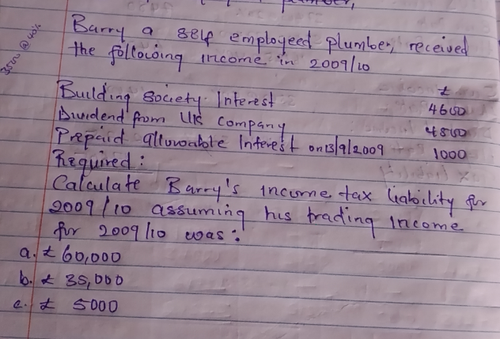 Barry a self employeed plumber, received
the following income in 2009/10
£
Building society Interest 4600
Dividend from UK company 4500
Prepaid allowable Interest on 13/9/2009 1000
Required:
Calculate Barry's income tax liability for
2009/10 assuming his trading income
for 2009/10 was:
a. £ 60,000
b. £ 35,000
c. £ 5000